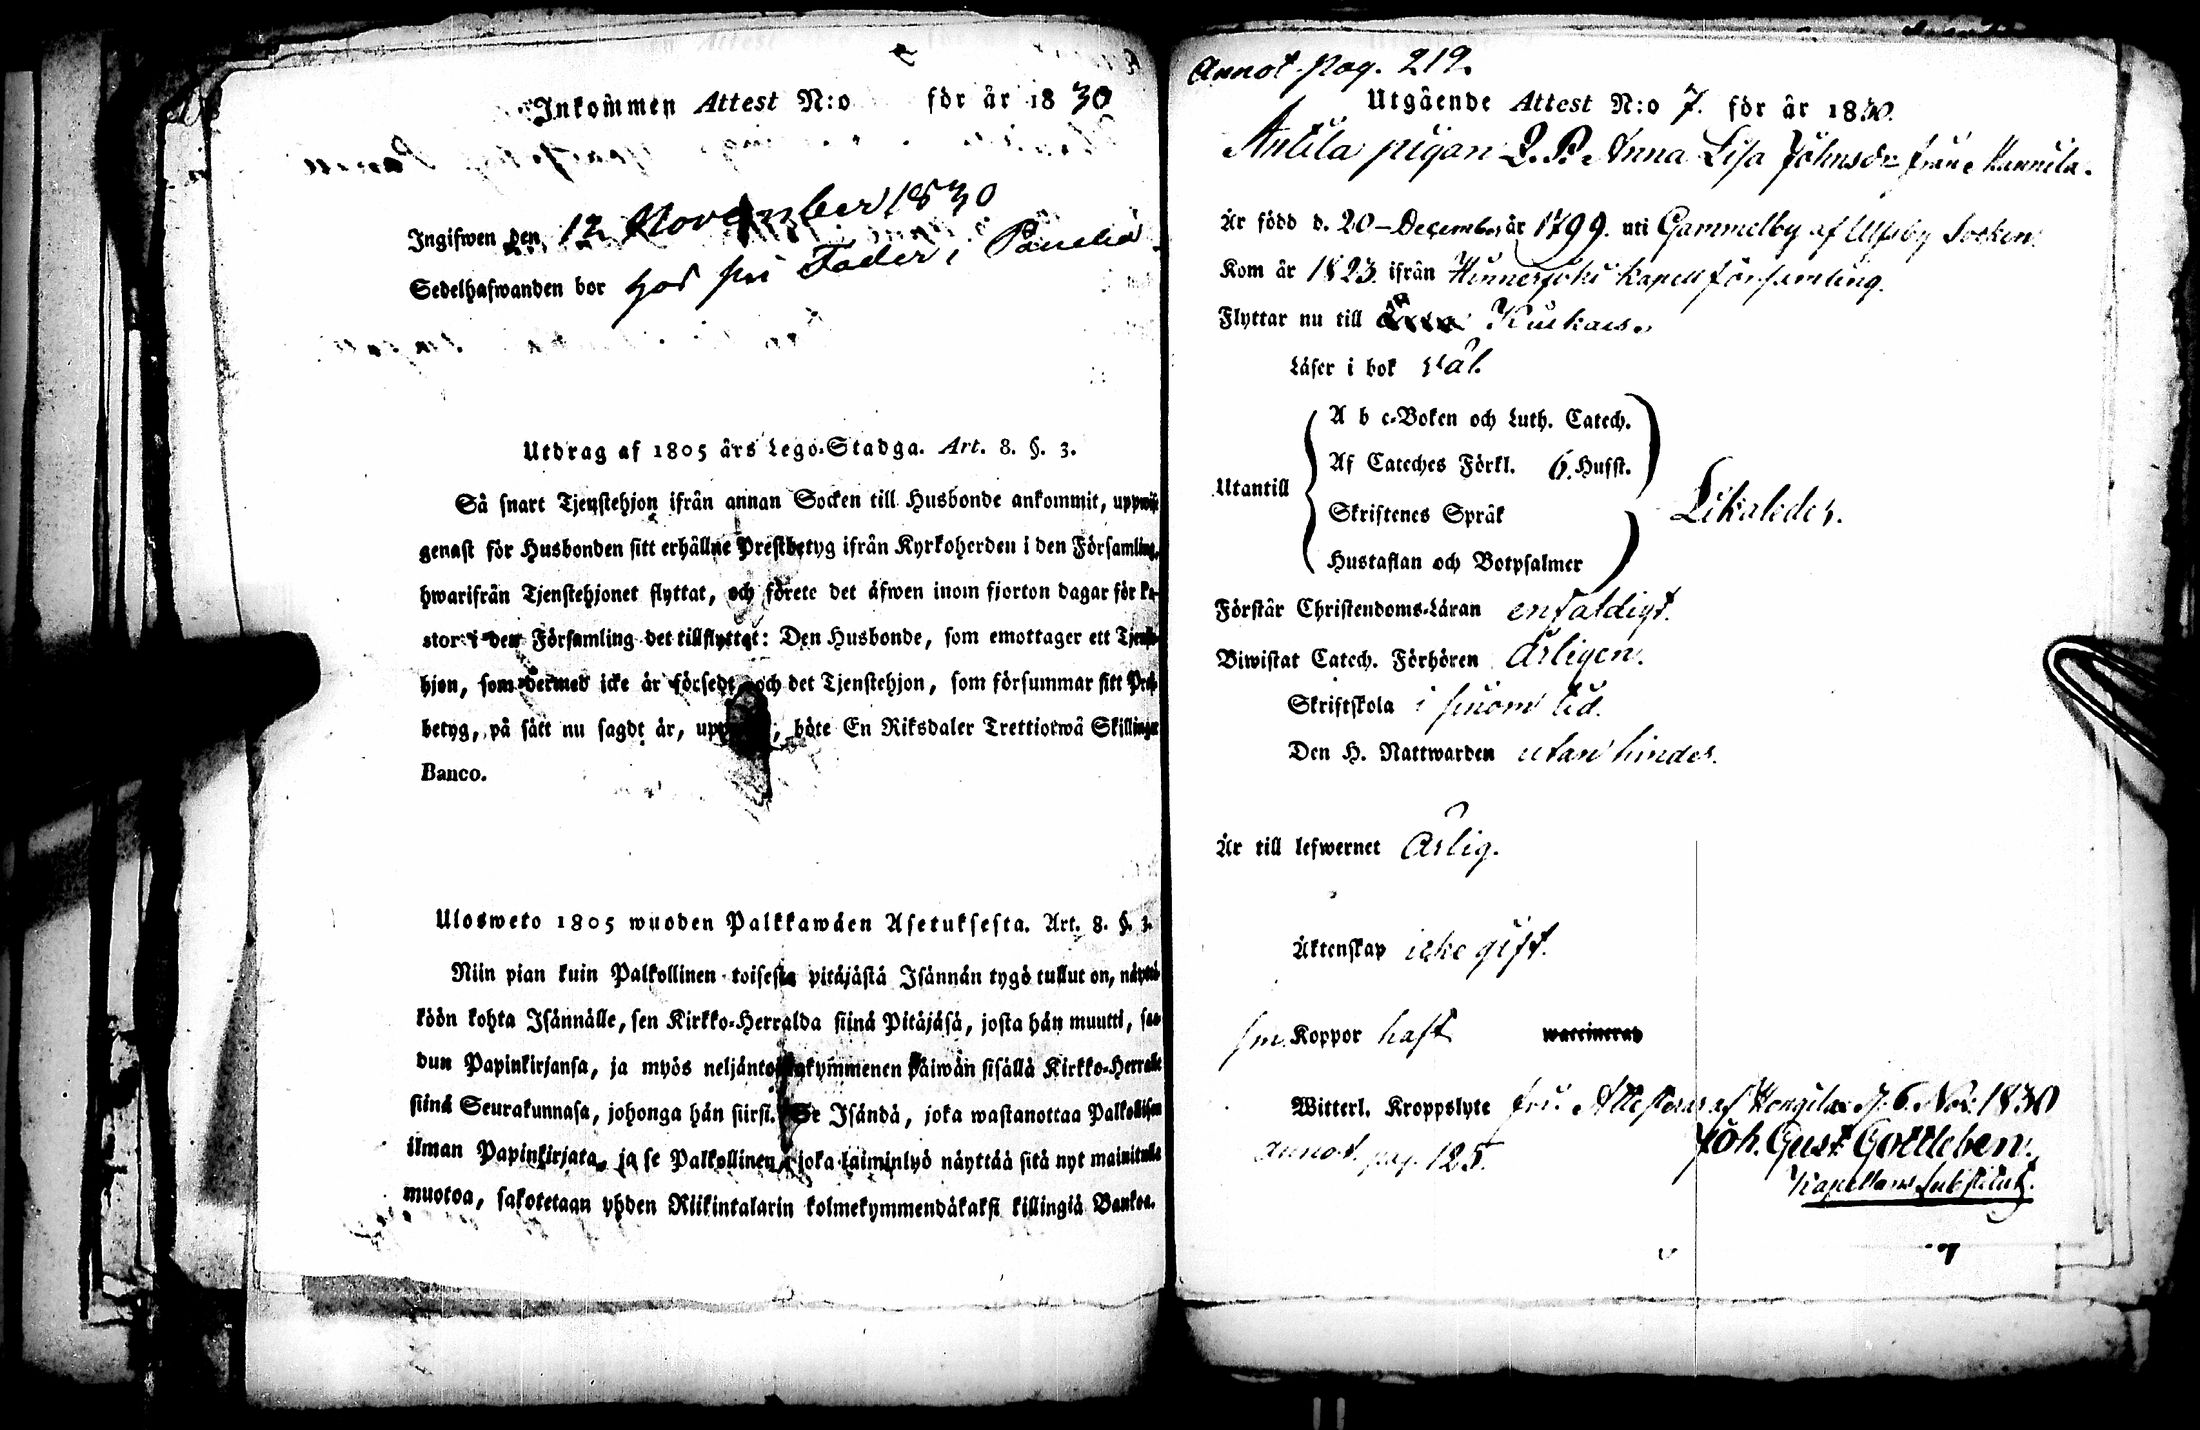 Inkommen Attest N:o för år 1830
Ingifwen den 12 November 1830
Sedelhafwanden bor hos sin Fader i Panelia
Utdrag af 1805 års Lego-Stadga. Art. 8. §. 3.
Så snart Tjenstehjon ifrån annan Socken till Husbonde ankommit, uppwise
genast för Husbonden sitt erhållne Prestbetyg ifrån Kyrkoherden i den Församling,
hwarifrån Tjenstehjonet flyttat, och förete det äfwen inom fjorton dagar för Pa-
stor i den Församling det tillflyttat: Den Husbonde, som emottager ett Tjenste-
hjon, som dermed icke är försedt, och det Tjenstehjon, som försummar sitt Prest-
betyg, på sätt nu sagdt är, böte En Riksdaler Trettiotwå Skillingar
Banco.
Ulosweto 1805 wuoden Palkkawäen Asetuksesta. Art. 8. §. 3.
Niin pian kuin Palkollinen toisesta pitäjästä Isännän tygö tullut on, näyttä-
köön kohta Isännälle, sen Kirkko-Herralda siinä Pitäjäsä, josta hän muutti, saa-
dun Papinkirjansa, ja myös neljäntoistakymmenen Päiwän sisällä Kirkko-Herralle
siinä Seurakunnasa, johonga hän siirsi. Se Isändä, joka wastanottaa Palkollisen
ilman Papinkirjata, ja se Palkollinen, joka laiminlyö näyttää sitä nyt mainitulla
muotoa, sakotetaan yhden Riikintalarin kolmekymmendäkaksi killingiä Bankoa.
Annot. pag. 219.
Utgående Attest N:o 7. för år 1830.
Anlila pigan Q. P. Anna Lisa Johnsdr från Hannila.
Är född d. 20 December år 1799. uti Gammelby af Ulfsby Socken.
Kom år 1823. ifrån Hinnerjoki kapell församling.
Flyttar nu till Kiukais.
Läser i bok väl.
Utantill
A b c-Boken och Luth. Catech.
Af Cateches Förkl. 6. Hufst.
Skriftenes Språk
Hustaflan och Botpsalmer
Likaledes.
Förstår Christendoms-Läran enfaldigt.
Biwistat Catech. Förhören Årligen.
Skriftskola i sinom tid.
Den H. Nattwarden utan hinder.
Är till lefwernet ärlig.
Äktenskap icke gift.
sm. Koppor haft waccinerad
Witterl. Kroppslyte fri. Attesteras af Hongila d. 6. Nov. 1830
Joh. Gust. Gottleben.
Kapellans Substitut.
annot. pag. 125.